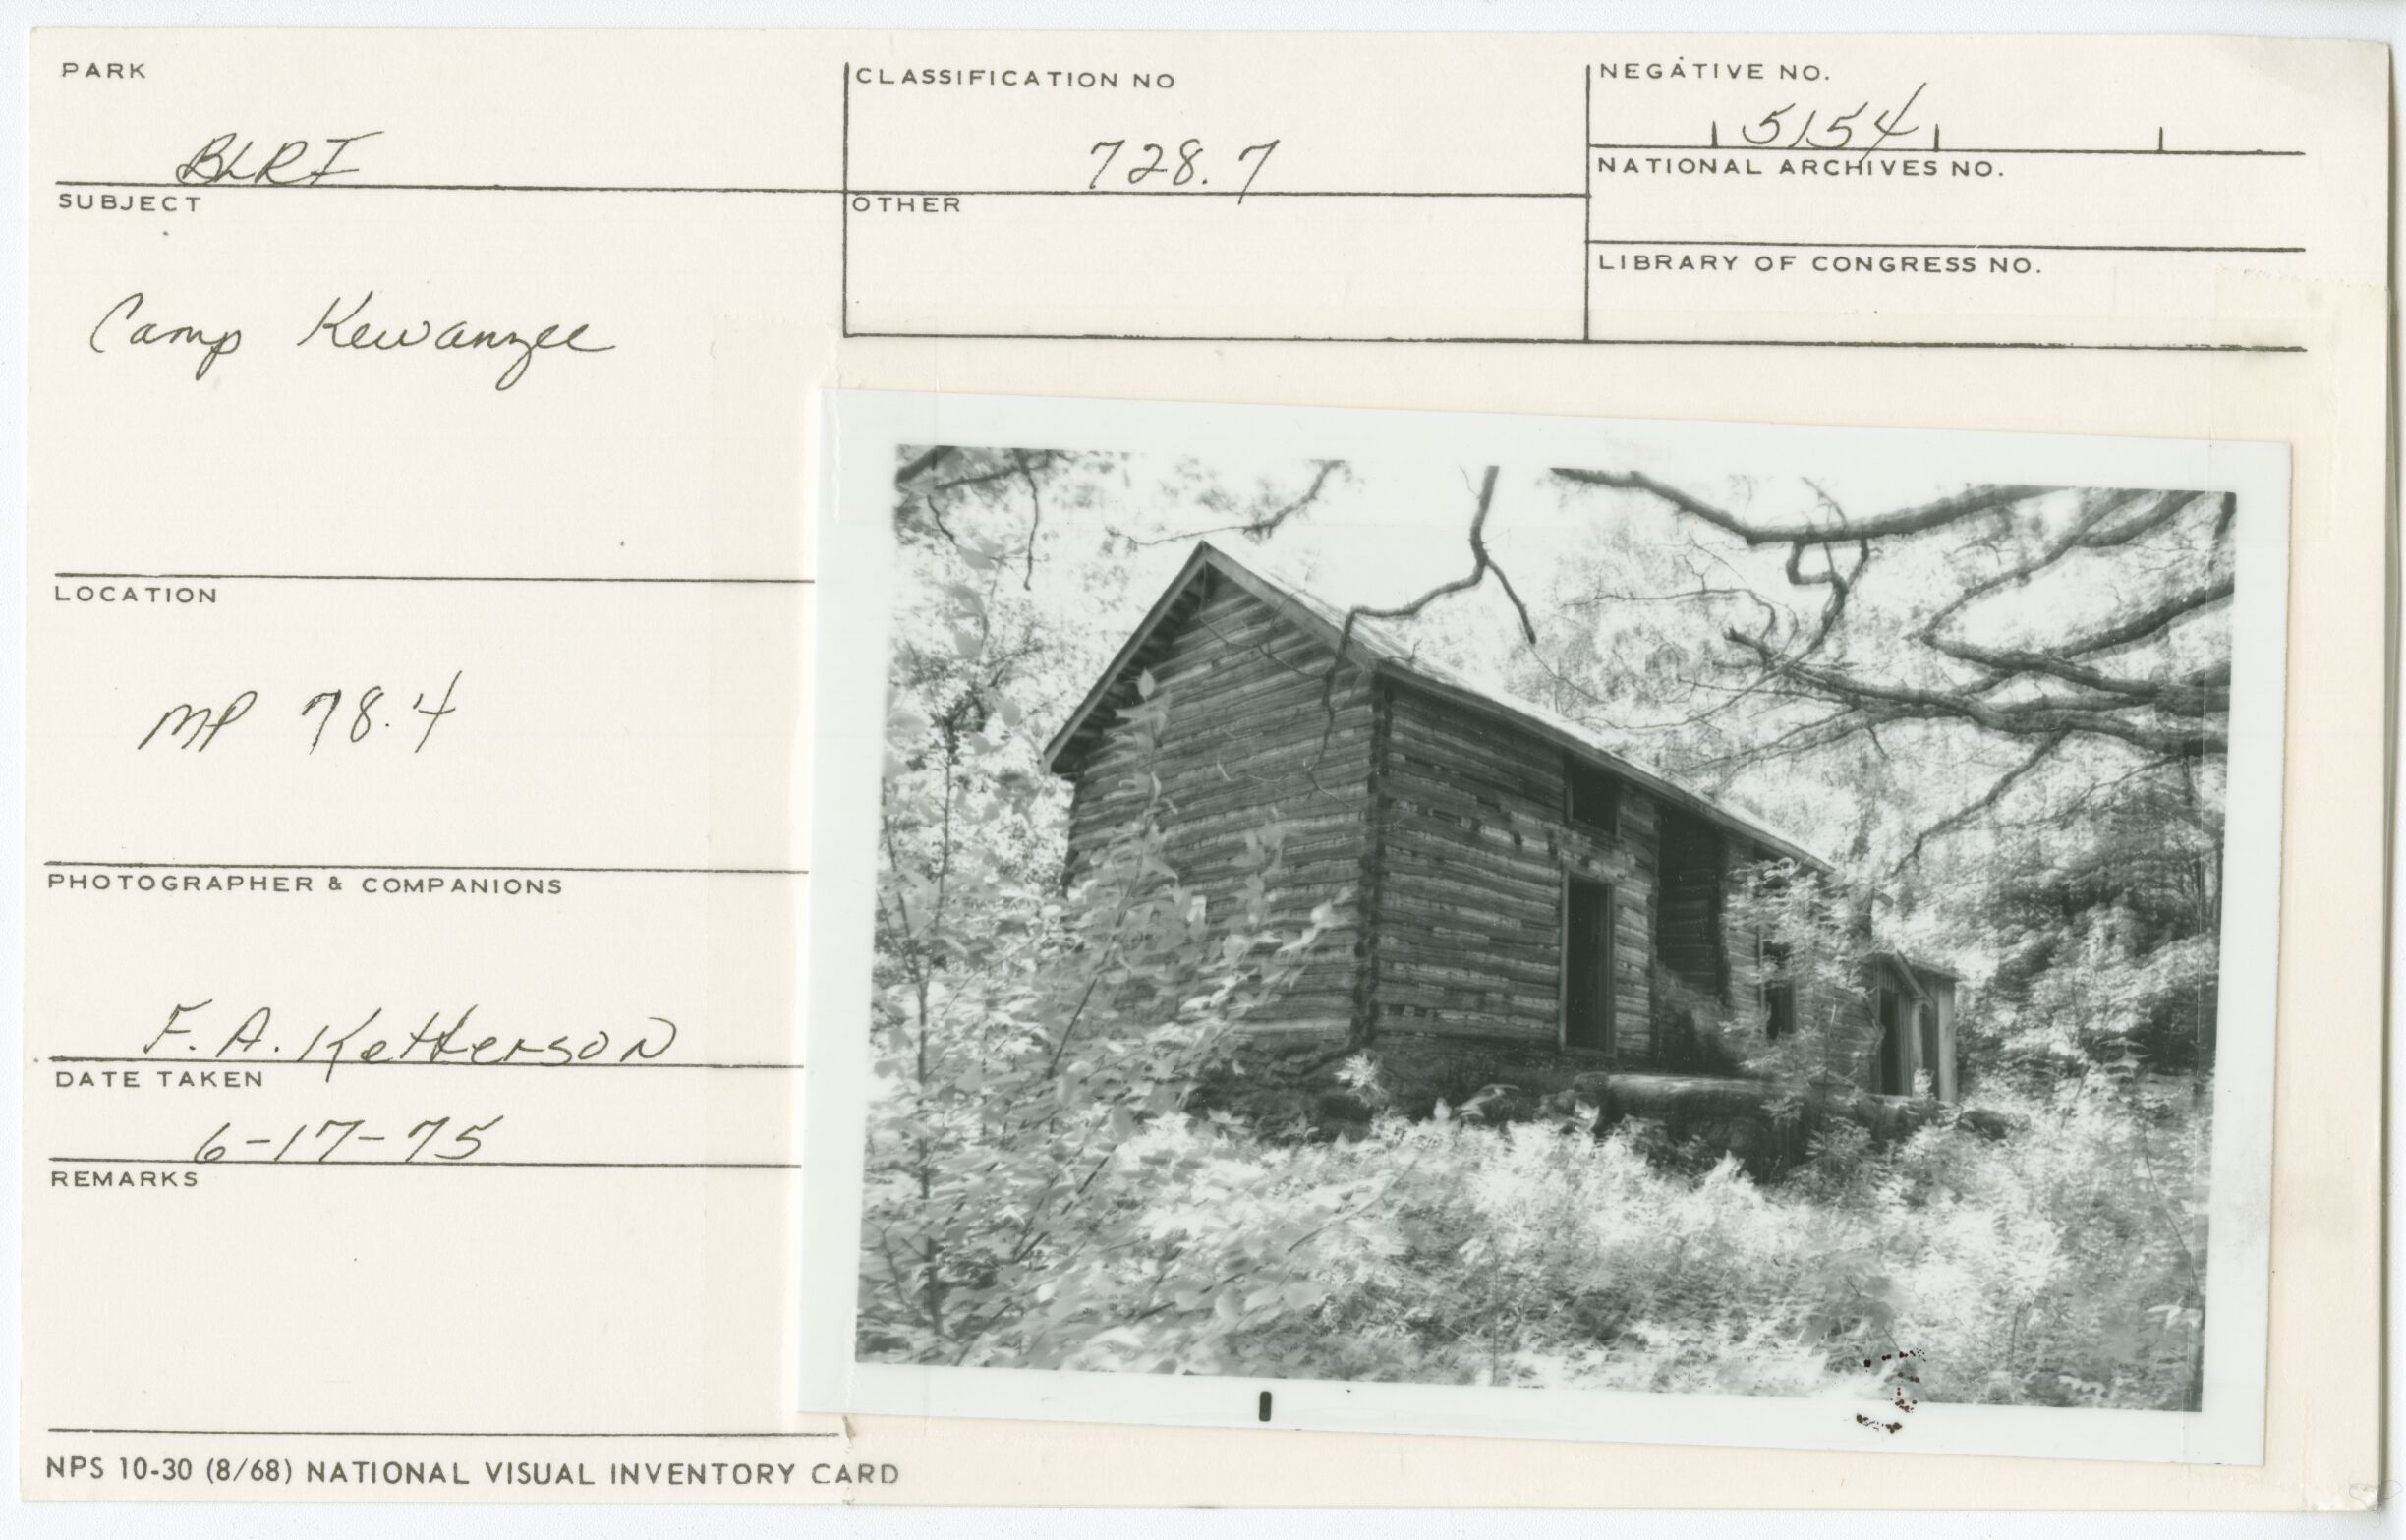 PARK
BLRI
CLASSIFICATION NO
728.7
NEGATIVE NO.
5154
NATIONAL ARCHIVES NO.
LIBRARY OF CONGRESS NO.
OTHER
SUBJECT
Camp Kewanzee
LOCATION
MP 78.4
PHOTOGRAPHER & COMPANIONS
F. A. Ketterson
DATE TAKEN
6-17-75
REMARKS
NPS 10-30 (8/68) NATIONAL VISUAL INVENTORY CARD